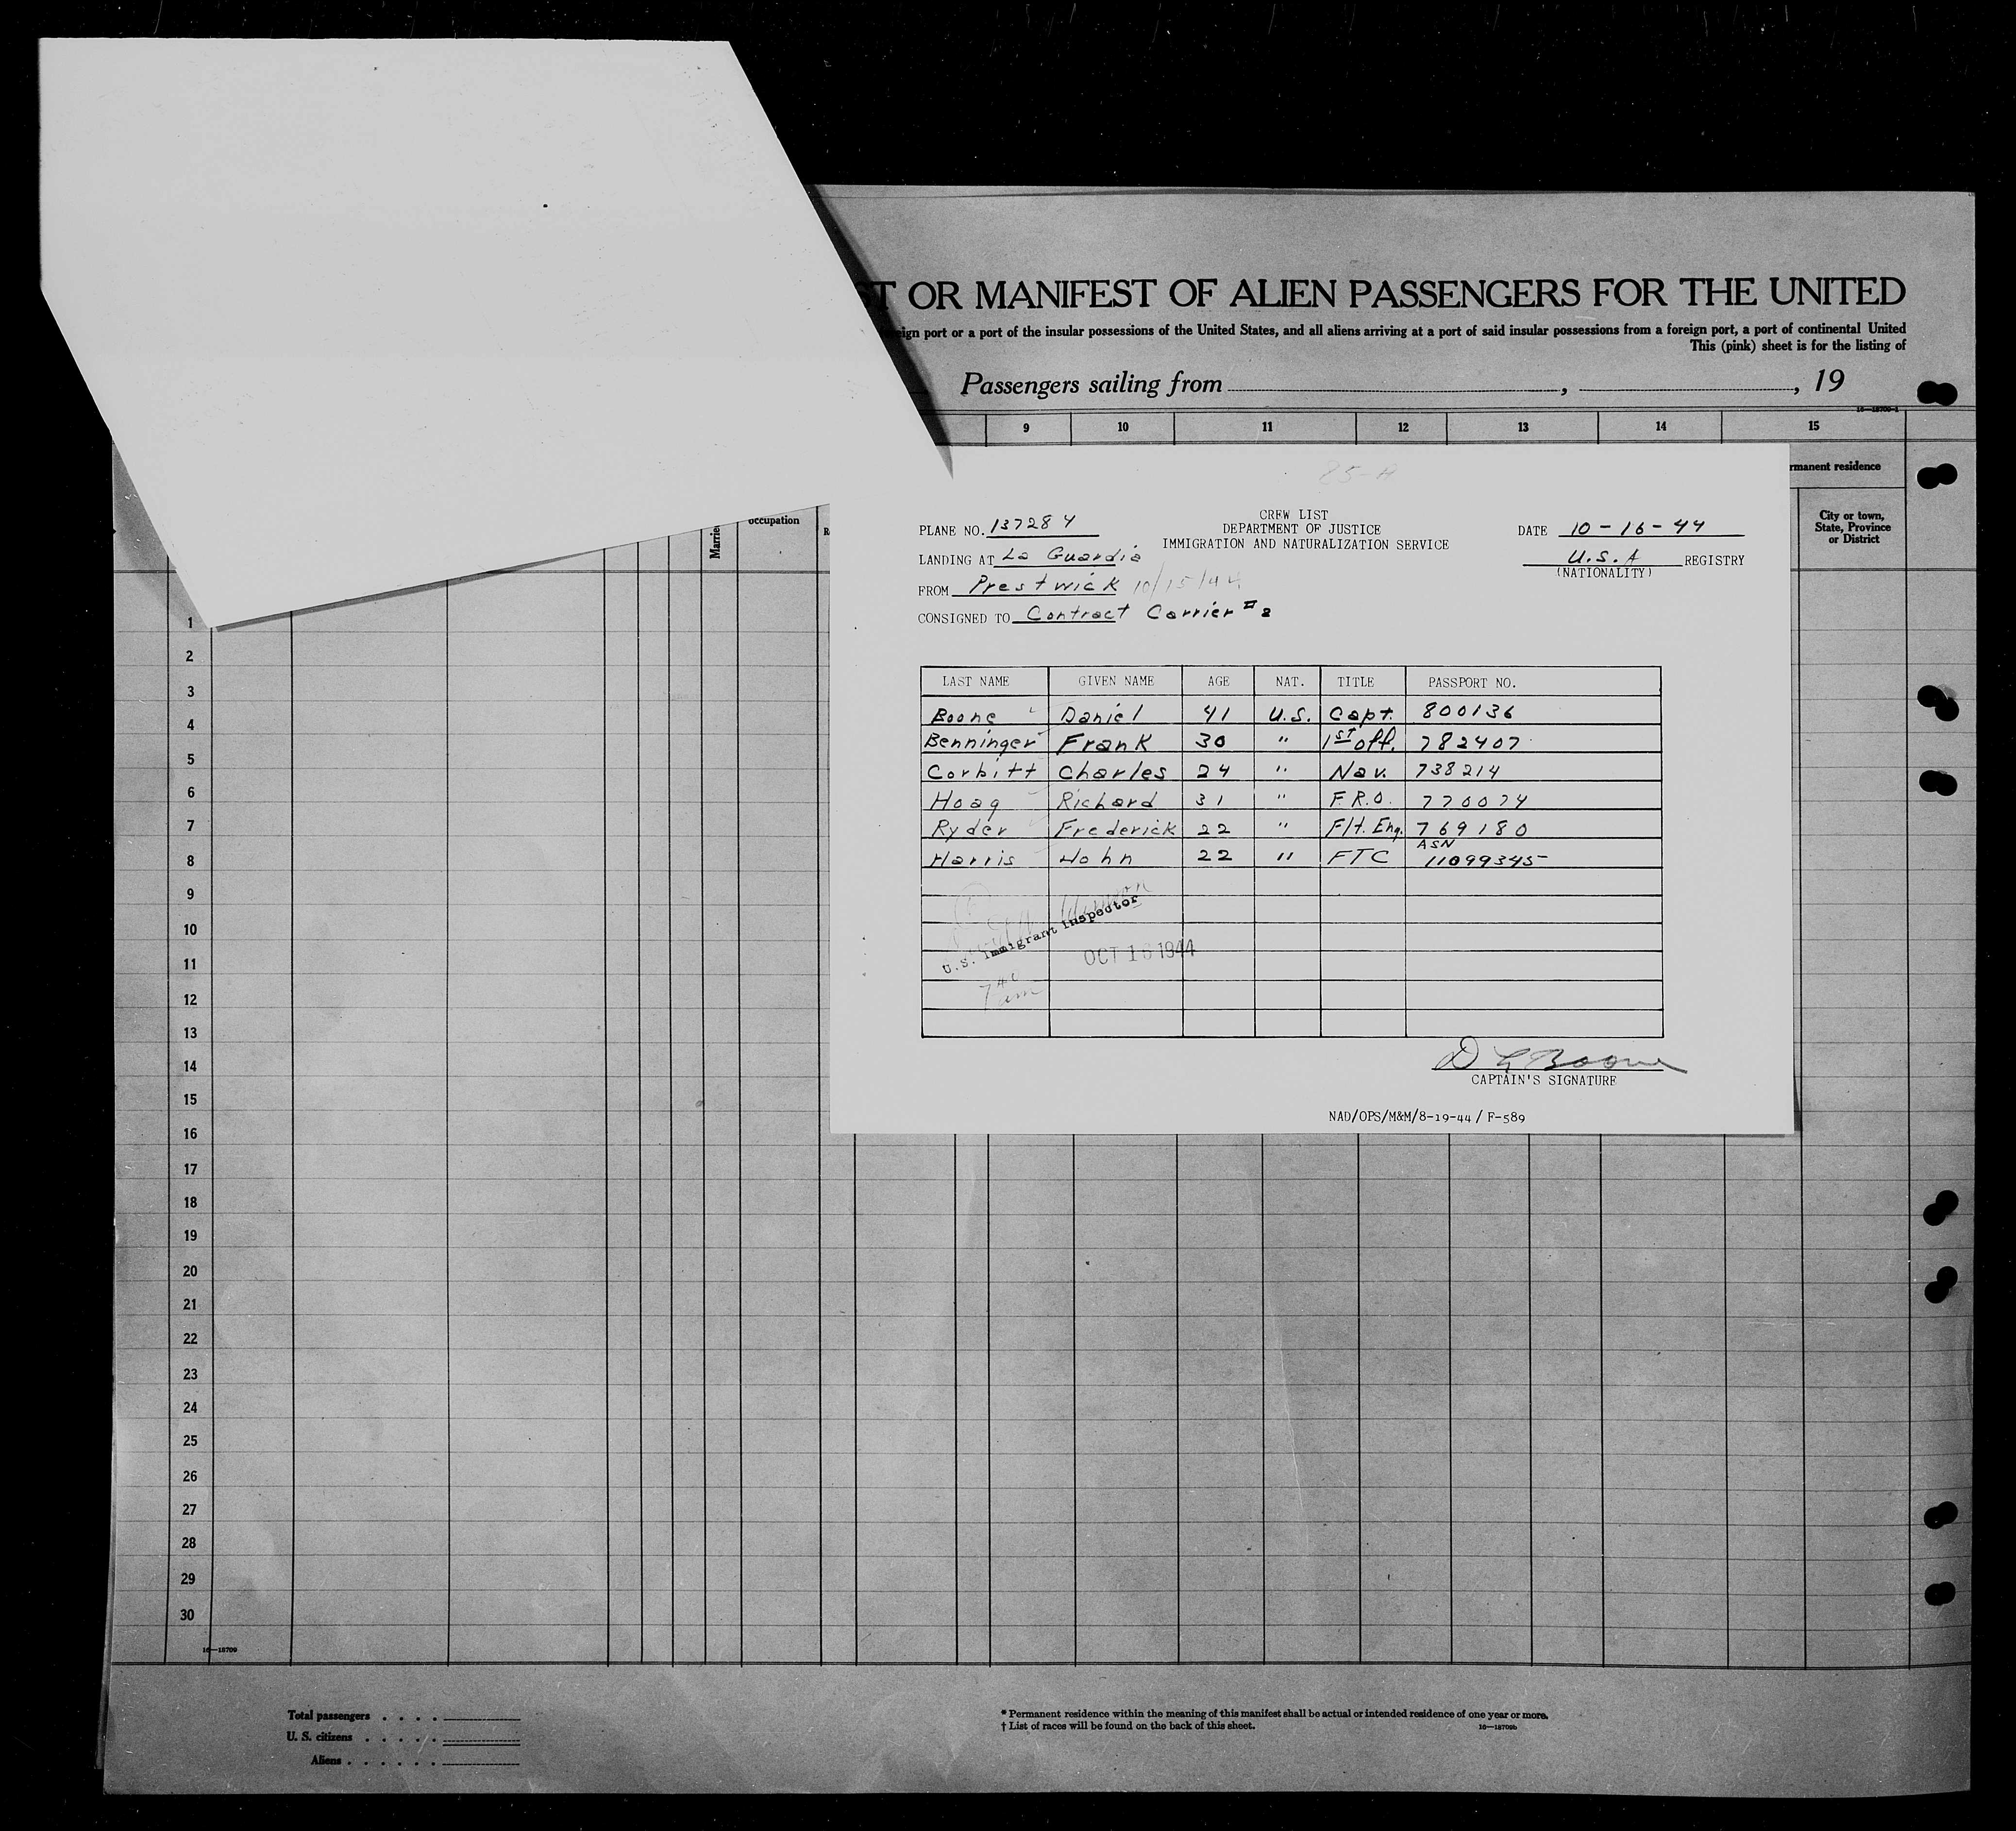 ST OR MANIFEST OF ALIEN PASSENGERS FOR THE UNITED
eign port or a port of the insular possessions of the United States, and all aliens arriving at a port of said insular possessions from a foreign port, a port of continental United
This (pink) sheet is for the listing of
Passengers sailing from , , 19
16—18709-1
9 10 11 12 13 14 15
rmanent residence
Married occupation
City or town, State, Province or District
85-A
CREW LIST
DEPARTMENT OF JUSTICE
IMMIGRATION AND NATURALIZATION SERVICE
PLANE NO. 137284
DATE 10-16-44
LANDING AT La Guardia
U.S.A REGISTRY
(NATIONALITY)
FROM Prestwick 10/15/44
CONSIGNED TO Contract Carrier #2
LAST NAME GIVEN NAME AGE NAT. TITLE PASSPORT NO.
Boone Daniel 41 U.S. Capt. 800136
Benninger Frank 30 " 1st off. 782407
Corbitt Charles 24 " Nav. 738214
Hoag Richard 31 " F.R.O. 770074
Ryder Frederick 22 " Flt. Eng. 769180
Harris John 22 " FTC ASN 11099345
U.S. Immigrant Inspector
OCT 16 1944
7 40 am
D L Boone
CAPTAIN'S SIGNATURE
NAD/OPS/M&M/8-19-44/ F-589
1
2
3
4
5
6
7
8
9
10
11
12
13
14
15
16
17
18
19
20
21
22
23
24
25
26
27
28
29
30
16—18709
Total passengers . . . .
U. S. citizens . . . . .
Aliens . . . . . .
* Permanent residence within the meaning of this manifest shall be actual or intended residence of one year or more.
† List of races will be found on the back of this sheet.
16—18709b